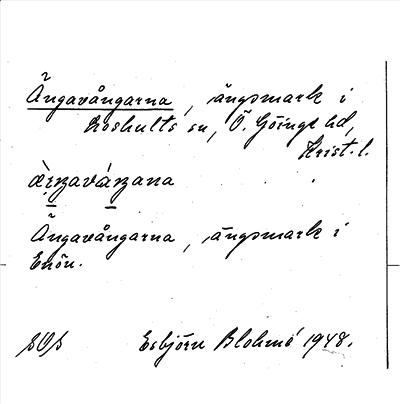 Ängavångarna, ängsmark i
Loshults sn, Ö. Göinge hd,
Krist. l.
Ängavångarna, ängsmark i
Enön.
SOS
Esbjörn Blohmé 1948.